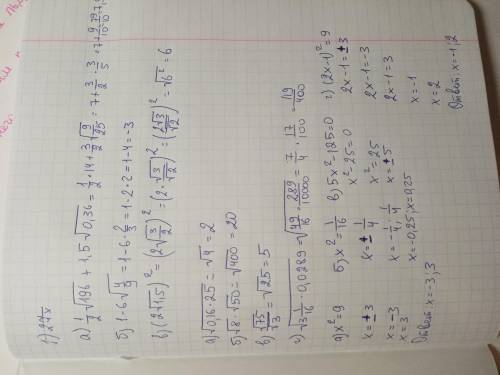 а) ½√196 + 1,5√0,36 = ½·14 + 3/2√9/25 = 7 + 3/2 · 3/5 = 7 + 9/10
б) 1 - 6√4/9 = 1 - 6·2/3 = 1 - 2·2 = 1 - 4 = -3
в) (2√1,5)² = (2√3/2)² = (2·√3/√2)² = (2√3/√2)² = √6² = 6
а) √0,16·25 = √4 = 2
б) √8·√50 = √400 = 20
в) √75/√3 = √25 = 5
г) √3 1/16 · 0,0289 = √49/16 · 289/10000 = 7/4 · 17/100 = 119/400
а) x² = 9
x = ±3
x = -3
x = 3
Ответ: x = -3; 3
б) x² = 1/16
x = ± 1/4
x = -1/4; 1/4
x = -0,25; x = 0,25
в) 5x² - 125 = 0
x² - 25 = 0
x² = 25
x = ±5
г) (2x-1)² = 9
2x-1 = ±3
2x-1 = -3
2x-1 = 3
x = -1
x = 2
Ответ: x = -1; 2